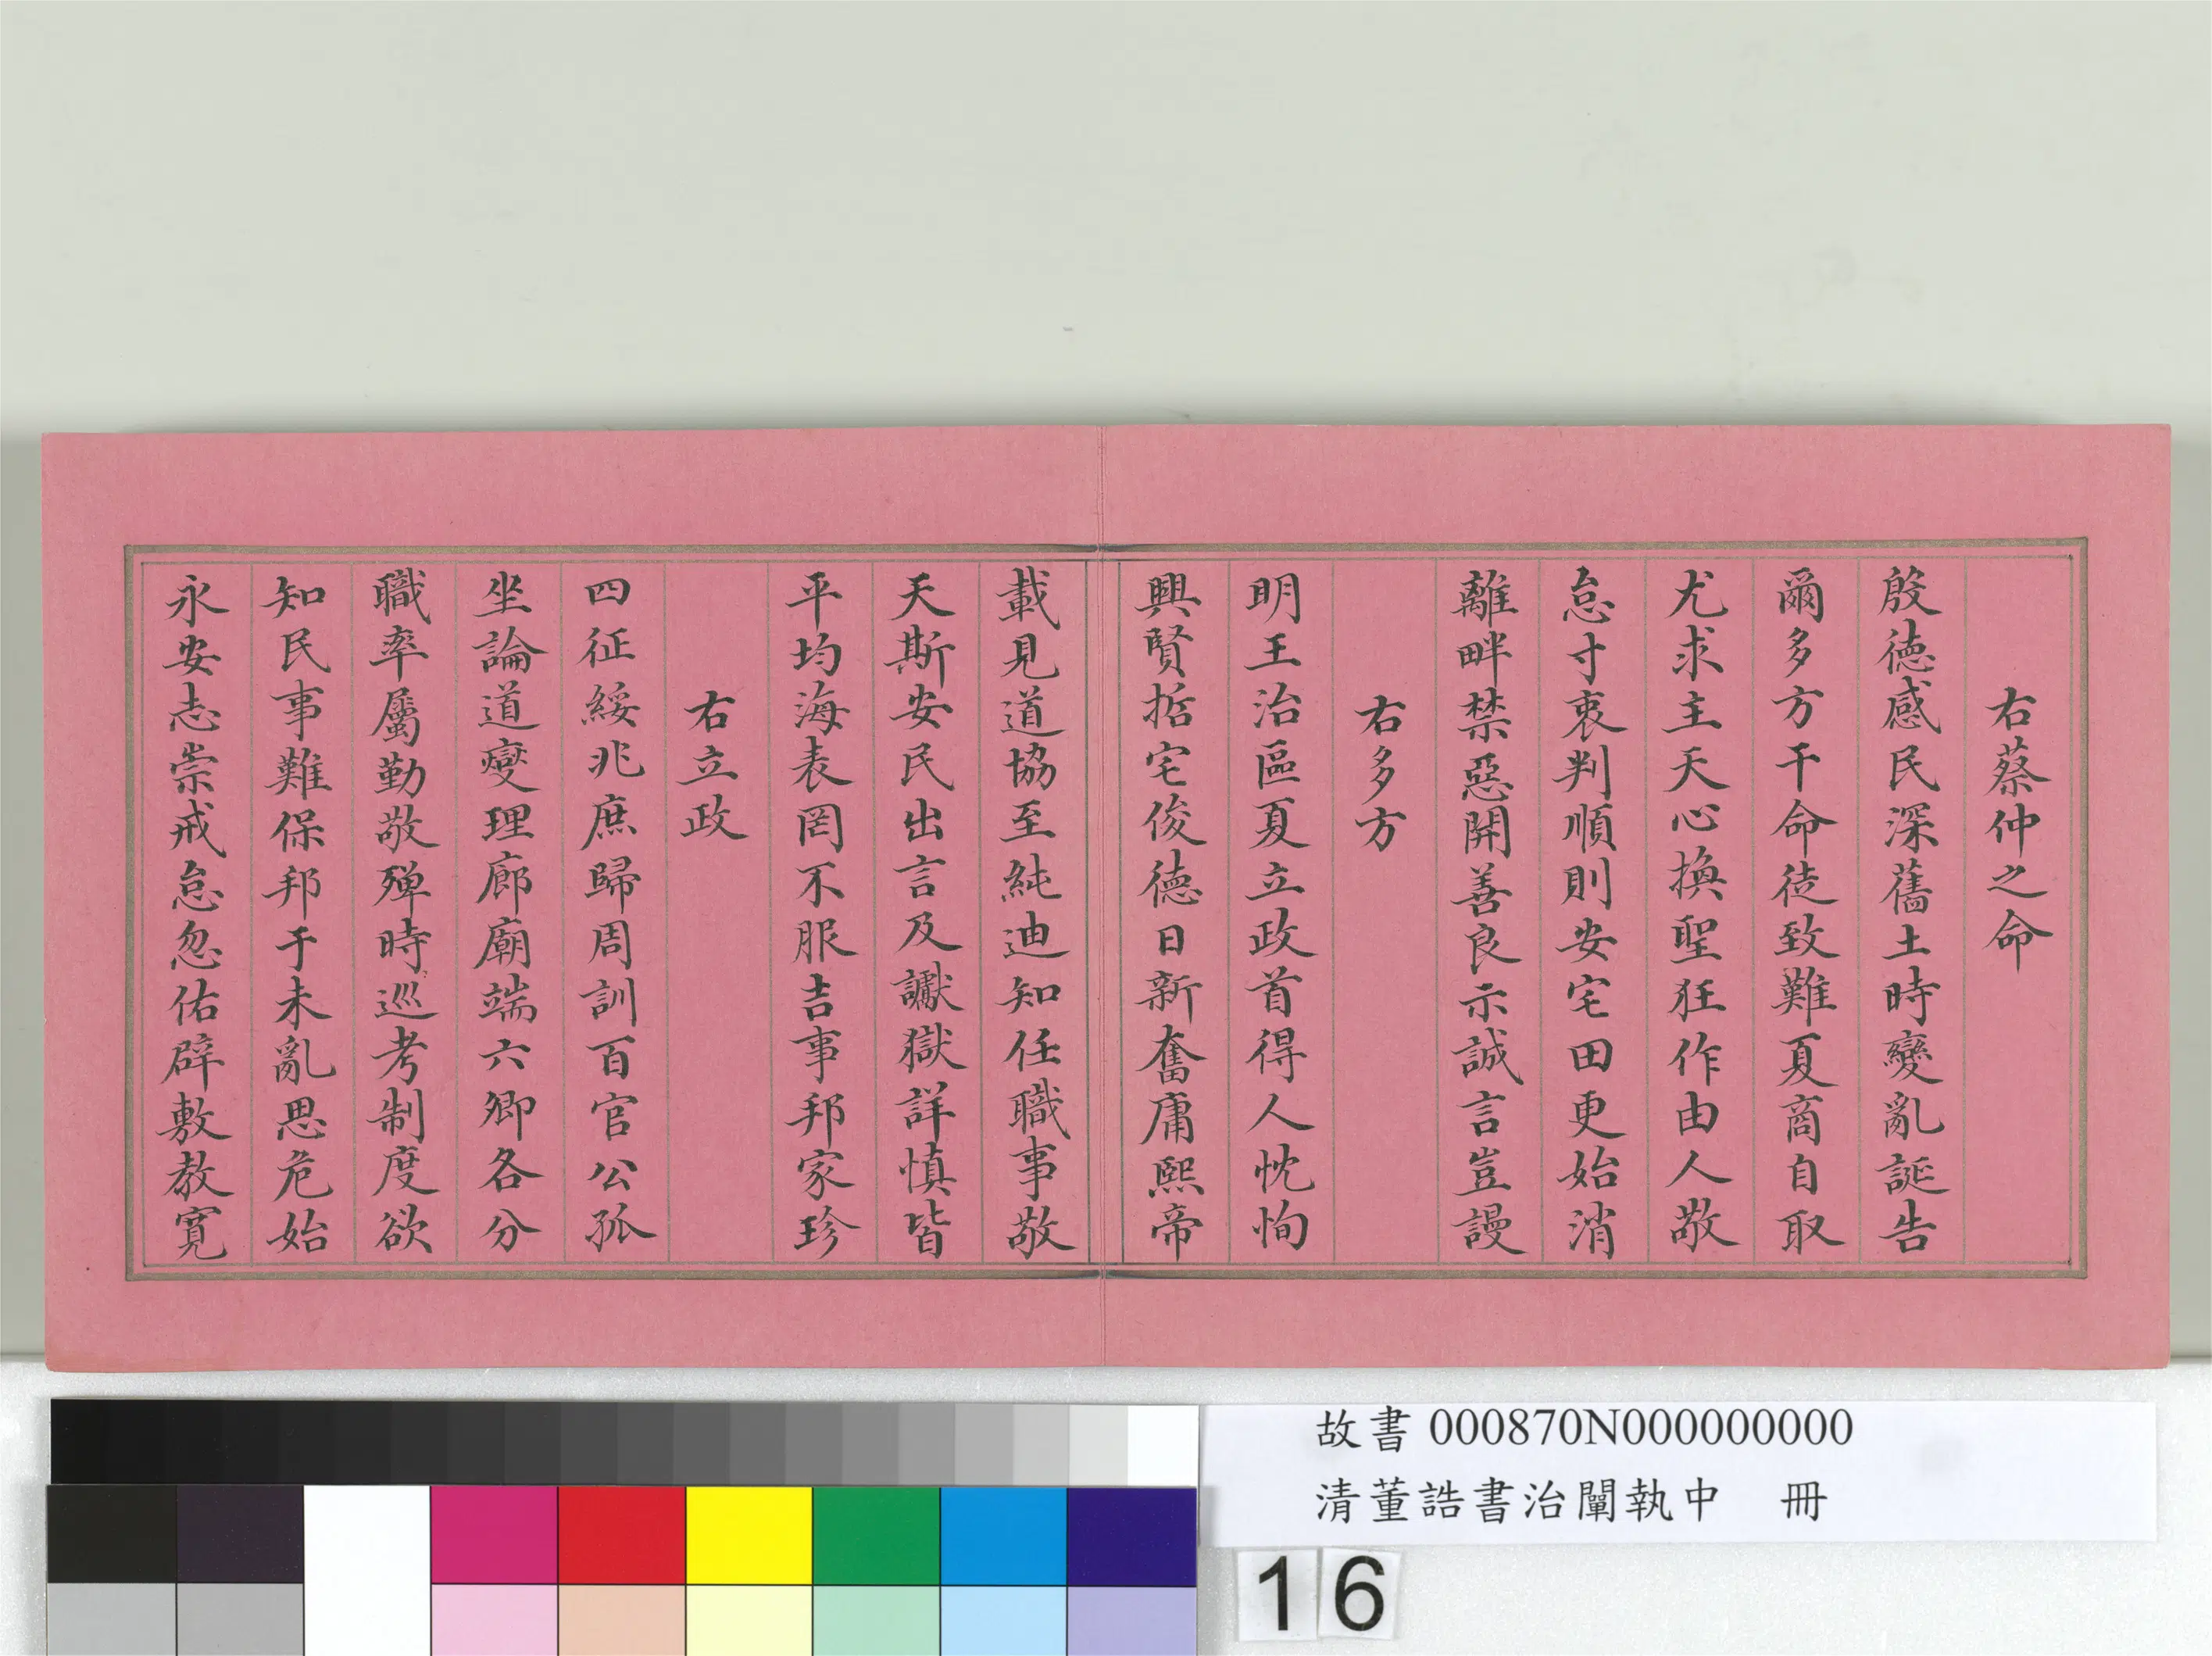 右蔡仲之命
殷德感民深舊土時變亂誕告
爾多方干命徒致難夏商自取
尤求主天心換聖狂作由人敬
怠寸衷判順則安宅田更始消
離畔禁惡開善良示誠言豈謾
右多方
明王治區夏立政首得人忱恂
興賢哲宅俊德日新奮庸熙帝
載見道協至純迪知任職事敬
天斯安民出言及讞獄詳慎皆
平均海表罔不服吉事邦家珍
右立政
四征綏兆庶歸周訓百官公孤
坐論道燮理廊廟端六卿各分
職率屬勤敬殫時巡考制度欲
知民事難保邦于未亂思危始
永安志崇戒怠忽佑辟敷教寬
故書 000870N000000000
清董誥書治闡執中 冊
16